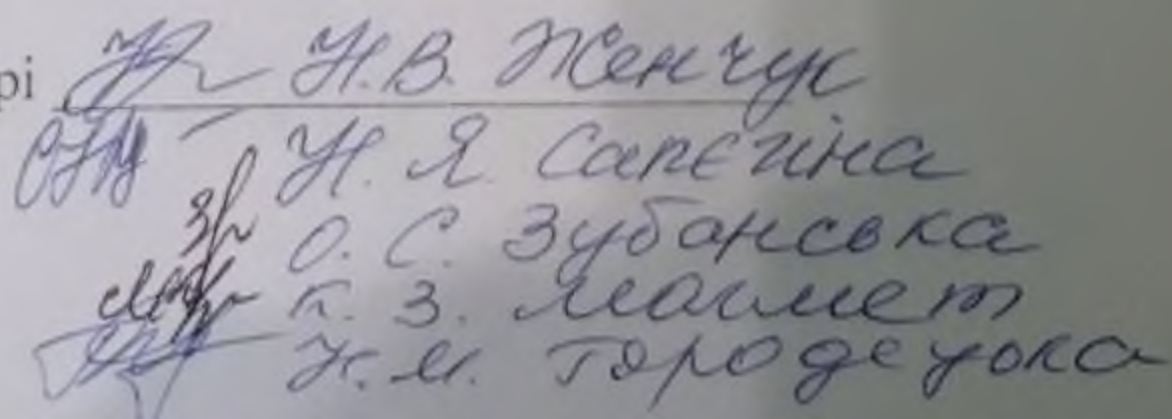 рі Н.В. Женчук
Н. Я. Сапєгіна
О. С. Зубанська
К. З. Магмет
Н. М. Городецька